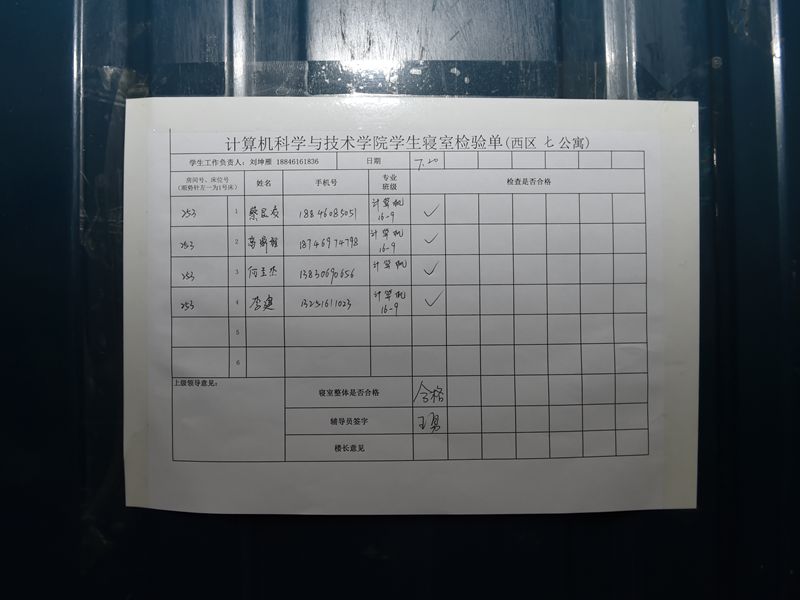 计算机科学与技术学院学生寝室检验单(西区 七 公寓)
学生工作负责人：刘坤雁 18846161836 日期 7.20
房间号、床位号 (顺势针左一为1号床) 姓名 手机号 专业班级 检查是否合格
253 1 蔡 友 18846085051 计算机 16-9 ✓
253 2 18746974798 计算机 16-9 ✓
253 3 何玉杰 13830690656 计算机 ✓
253 4 李建 13251611023 计算机 16-9 ✓
5
6
上级领导意见：
寝室整体是否合格 合格
辅导员签字 王勇
楼长意见